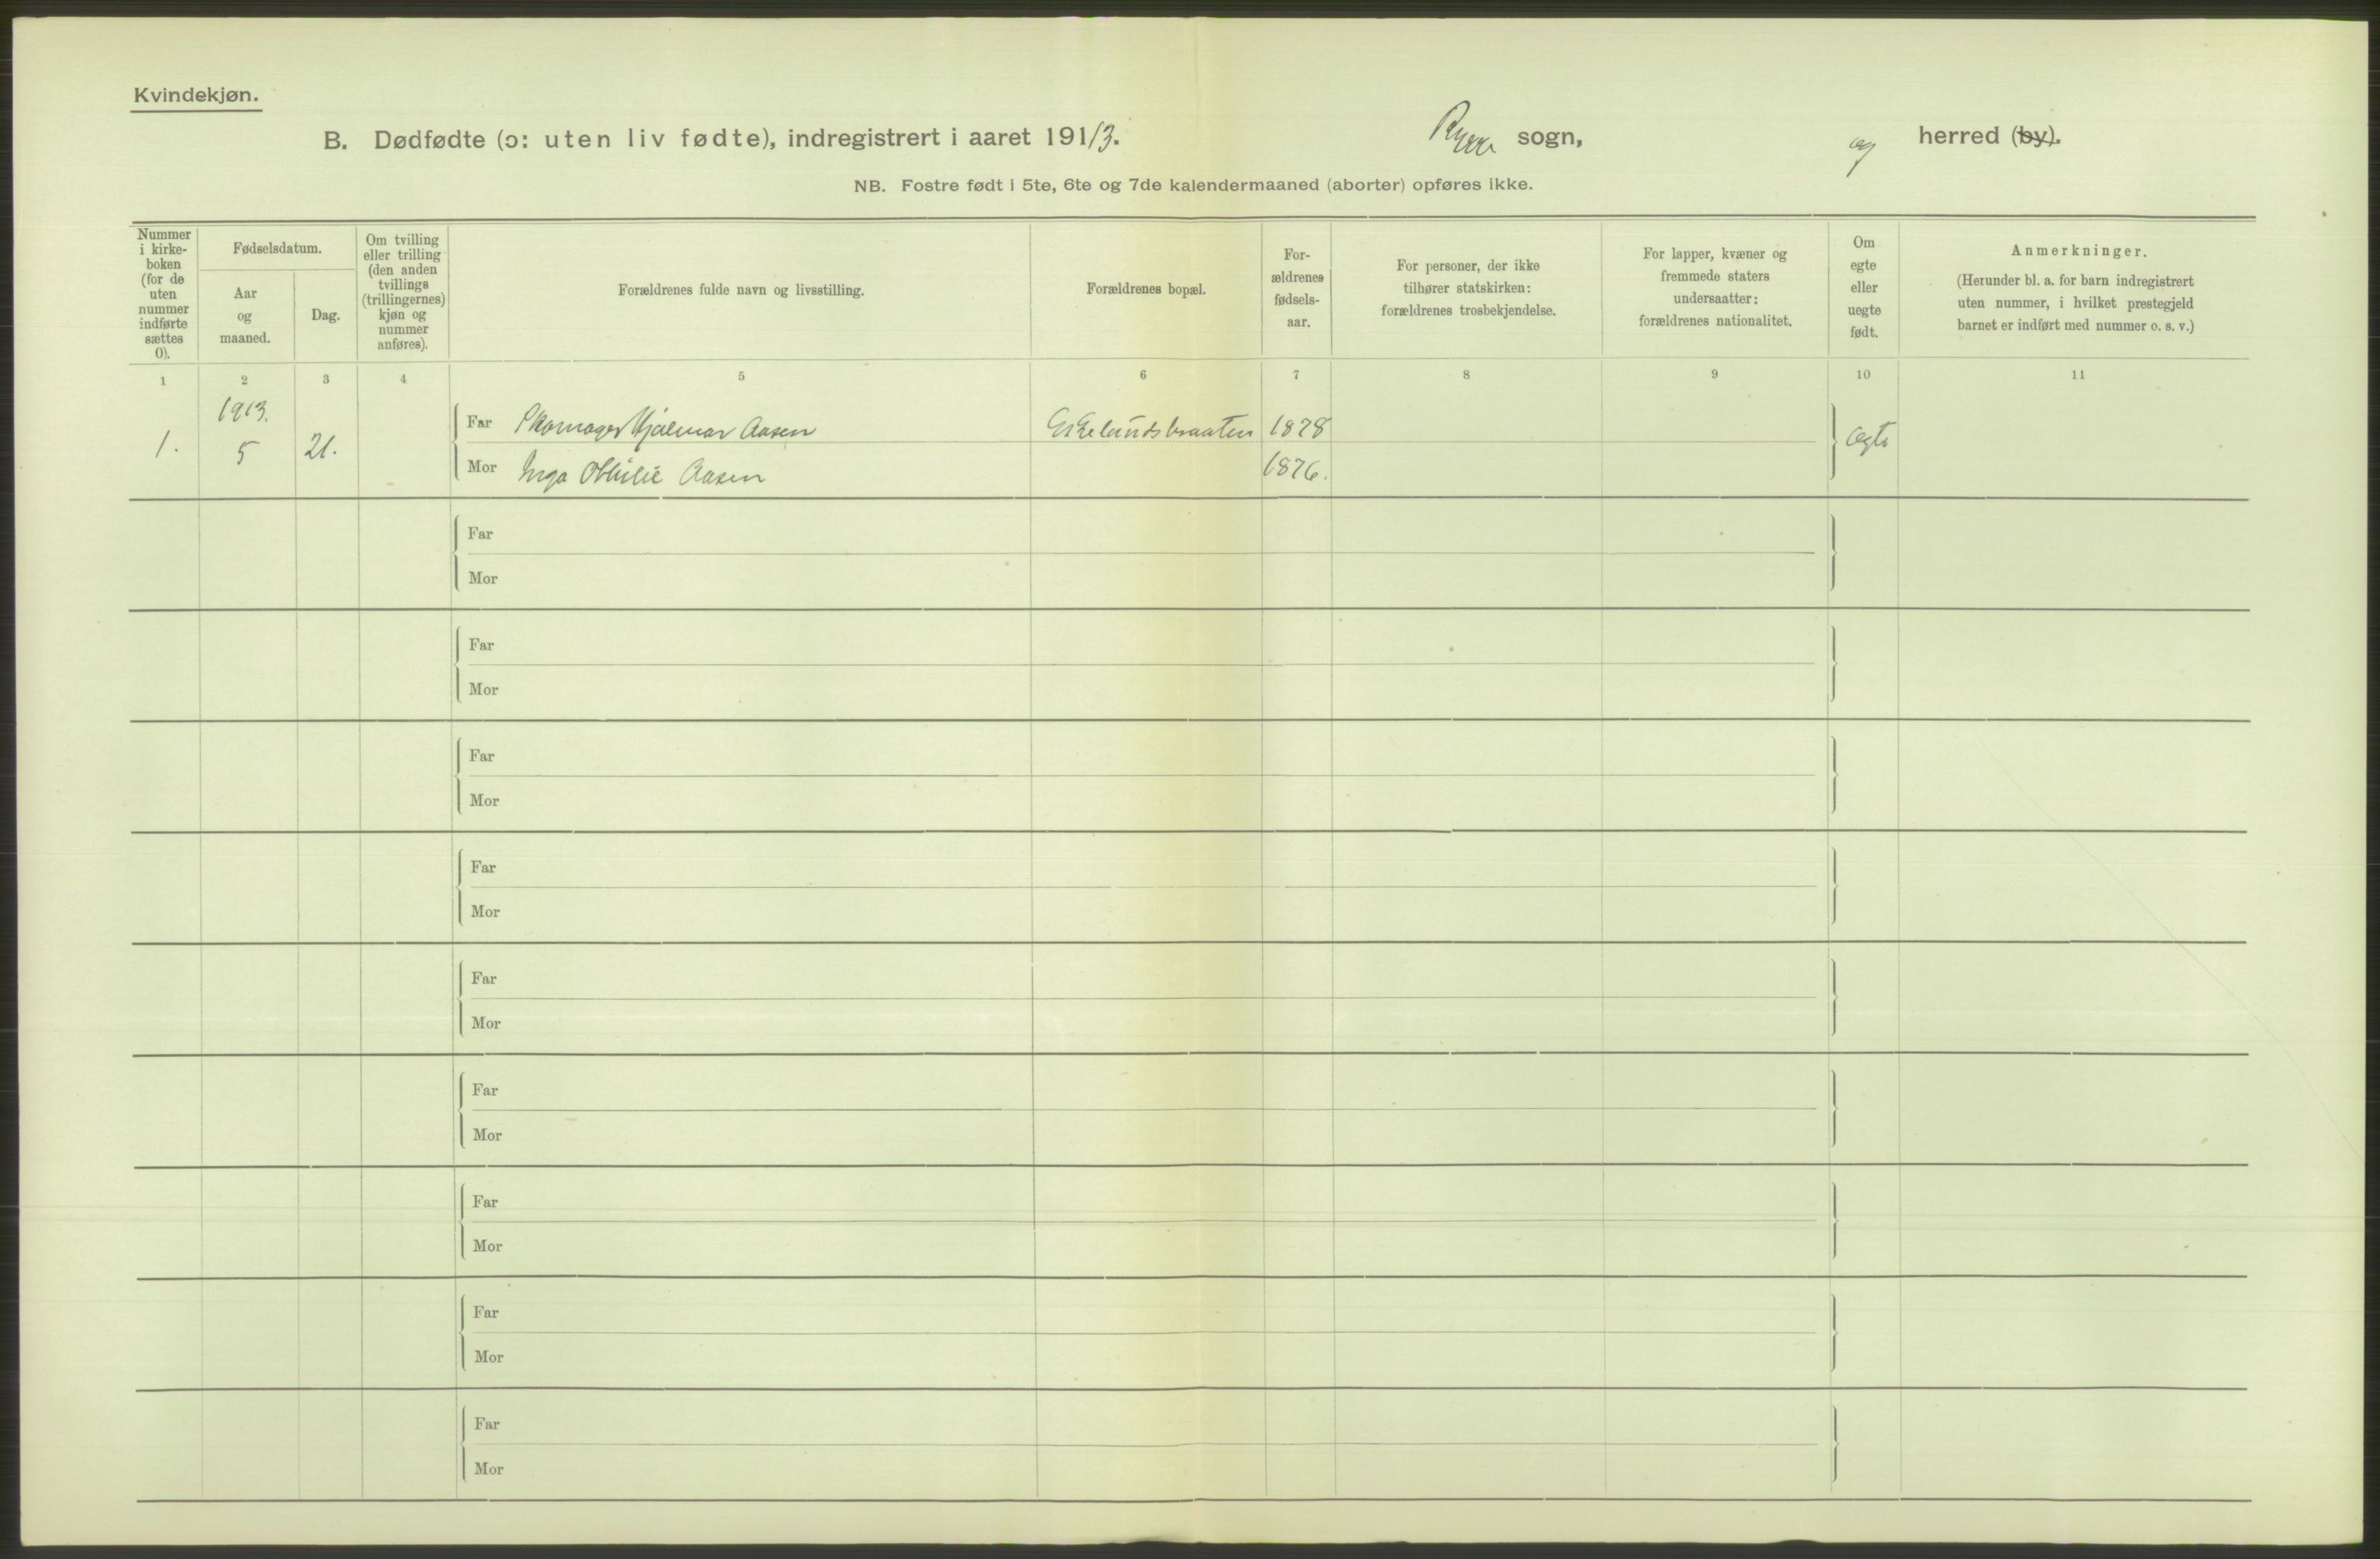 Kvindekjøn.
B. Dødfødte (ɔ: uten liv fødte), indregistrert i aaret 1913. Rygge sogn, og herred (by).
NB. Fostre født i 5te, 6te og 7de kalendermaaned (aborter) opføres ikke.
Nummer i kirke-boken (for de uten nummer indførte sættes 0).
Fødselsdatum.
Aar og maaned.
Dag.
Om tvilling eller trilling (den anden tvillings (trillingernes) kjøn og nummer anføres).
Forældrenes fulde navn og livsstilling.
Forældrenes bopæl.
For-ældrenes fødsels-aar.
For personer, der ikke tilhører statskirken: forældrenes trosbekjendelse.
For lapper, kvæner og fremmede staters undersaatter: forældrenes nationalitet.
Om egte eller uegte født.
Anmerkninger.
(Herunder bl. a. for barn indregistrert uten nummer, i hvilket prestegjeld barnet er indført med nummer o. s. v.)
1 2 3 4 5 6 7 8 9 10 11
1913.
1. 5 21.
Far Skomager Hjalmar Aasen Eskelundsbraaten 1878 ægte
Mor Inga Othilie Aasen 1876.
Far
Mor
Far
Mor
Far
Mor
Far
Mor
Far
Mor
Far
Mor
Far
Mor
Far
Mor
Far
Mor